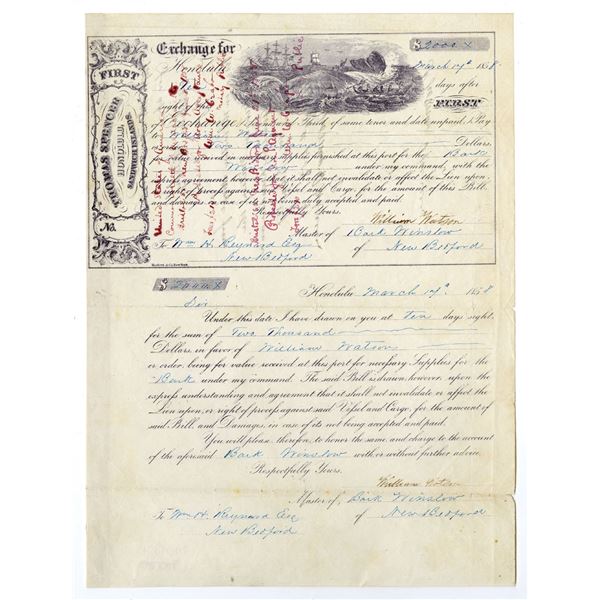 FIRST
THOMAS SPENCER
HONOLULU,
SANDWICH ISLANDS.
No.
Exchange for
$ 2000 x
Honolulu March 17th 1858
days after
sight of this FIRST
of Exchange, Second and Third, of same tenor and date unpaid, Pay
to William
Two Thousand Dollars,
for value received in necessary supplies furnished at this port for the Bark
under my command, with the
express agreement, however, that it shall not invalidate or affect the Lien upon,
or right of process against said Vessel and Cargo, for the amount of this Bill
and Damages, in case of its not being duly accepted and paid.
Respectfully Yours,
William Watson
Master of Bark Winslow
To Wm H. Reynard Esq of New Bedford
New Bedford
$ 2000 x
Honolulu March 17th 1858
Sir
Under this date I have drawn on you at Ten days sight,
for the sum of Two Thousand
Dollars, in favor of William Watson
or order, being for value received at this port for necessary Supplies for the
Bark under my command. The said Bill is drawn, however, upon the
express understanding and agreement that it shall not invalidate or affect the
Lien upon, or right of process against said Vessel and Cargo, for the amount of
said Bill and Damages, in case of its not being accepted and paid.
You will please, therefore, to honor the same, and charge to the account
of the aforesaid Bark Winslow with or without further advice.
Respectfully Yours,
William Watson
Master of, Bark Winslow
To Wm H. Reynard Esq of New Bedford
New Bedford